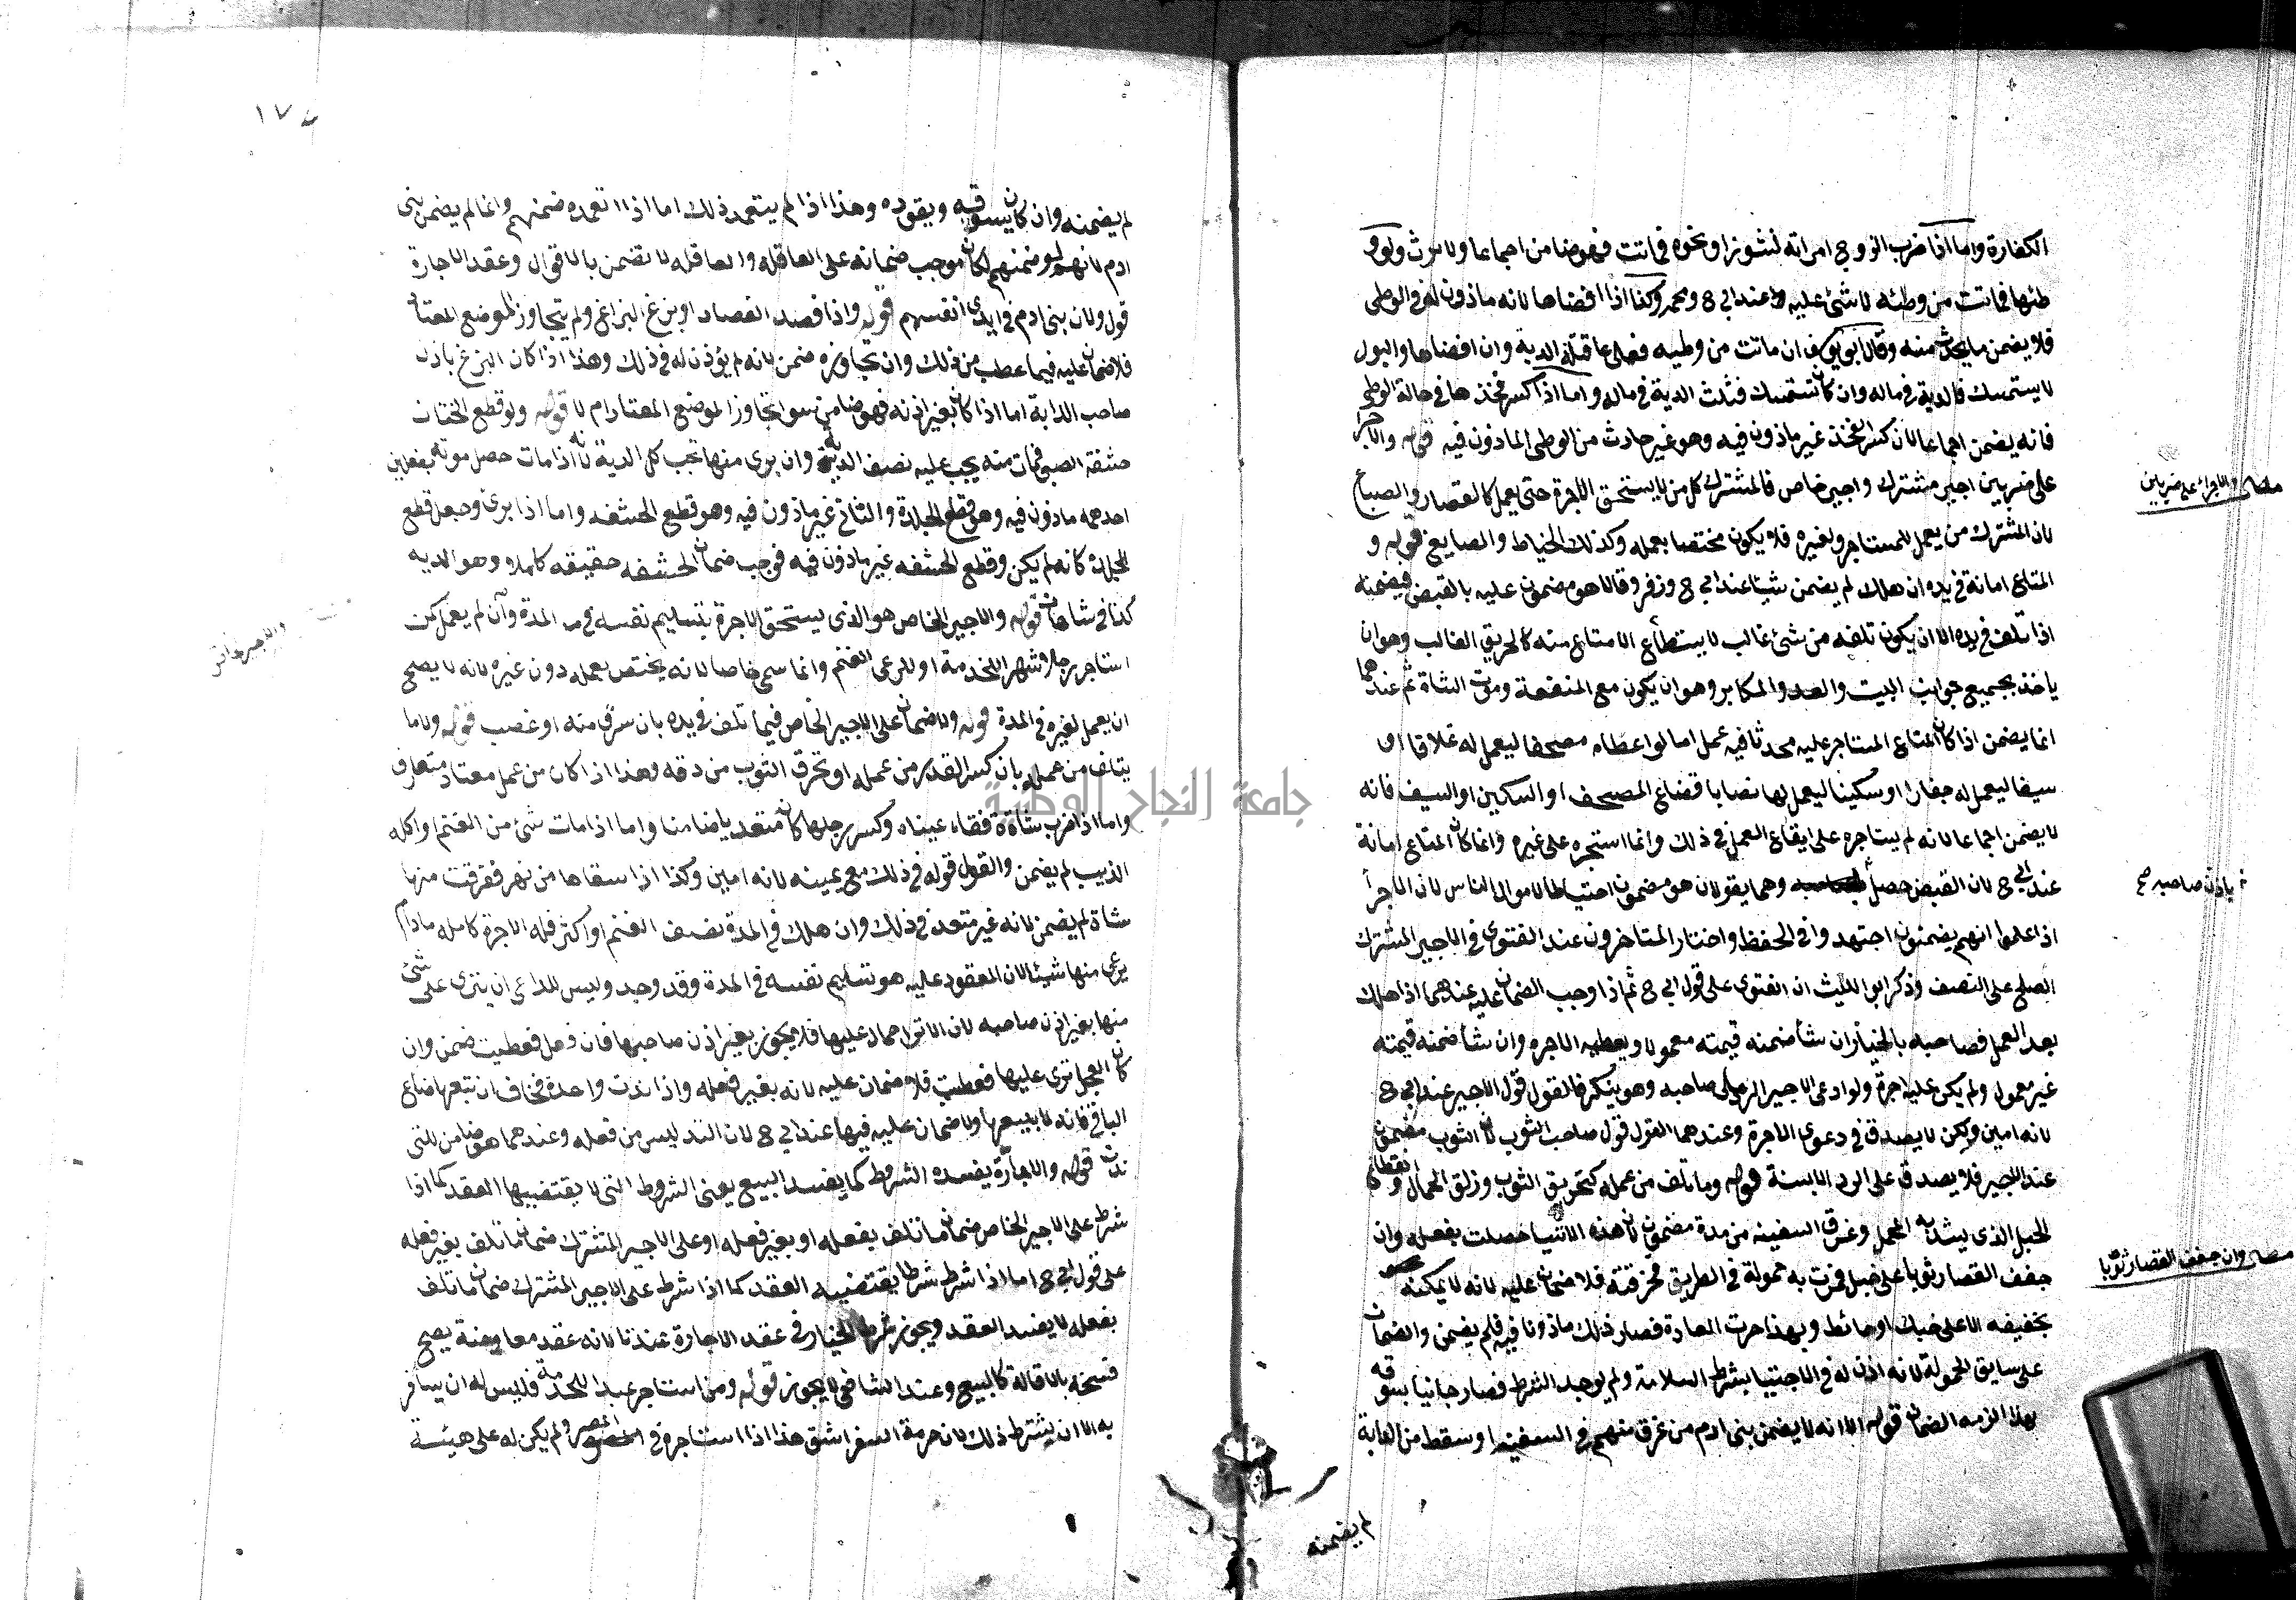 الكفارة واما اذا ضرب الزوج امراته لنشوز او نحوه فماتت فهو ضامن اجماعا ولا يرث ولو و
طئها فماتت من وطئه لا شئ عليه عند ابي 8 ومحمد وكذا اذا افضاها لانه ماذون له في الوطي
فلا يضمن ما يحدث منه وقال ابو يوسف ان ماتت من وطيه فعلى عاقلته الدية وان افضاها والبول
لا يستمسك فالدية في ماله وان كان يستمسك فثلث الدية في ماله واما اذا كسر فخذها في حالة الوطي
فانه يضمن اجماعا لان كسر الفخذ غير ماذون فيه وهو غير حادث من الوطي الماذون فيه قوله والاجرا
على ضربين اجير مشترك واجير خاص فالمشترك كل من لا يستحق الاجرة حتى يعمل كالقصار والصباغ
لان المشترك من يعمل للمستاجر ولغيره فلا يكون مختصا بعمله وكذلك الخياط والصايغ قوله و
المتاع امانة في يده ان هلك لم يضمن شيئا عند ابي 8 وزفر وقالا هو مضمون عليه بالقبض فيضمنه
اذا تلف في يده الا ان يكون تلفه من شئ غالب لا يستطاع الامتناع منه كالحريق الغالب وهو ان
ياخذ بجميع جوانب البيت والعدو المكابر وهو ان يكون مع المنعة وموت الشاة ثم عندهما
انما يضمن اذا كان المتاع المستاجر عليه محدثا فيه عمل اما لو اعطاه مصحفا ليعمل له غلافا او
سيفا ليعمل له جفارا او سكينا ليعمل لها نصابا فضاع المصحف او السكين او السيف فانه
لا يضمن اجماعا لانه لم يستاجره على ايقاع العمل في ذلك وانما استجره على غيره وانما كان المتاع امانة
عند ابي 8 لان القبض حصل وهما يقولان هو مضمون احتياطا لاموال الناس لان الاجرا
اذا علموا انهم يضمنون اجتهدوا في الحفظ واختار المتاخرون عند الفتوى في الاجير المشترك
الصلح على النصف وذكر ابو الليث ان الفتوى على قول ابي 8 ثم اذا وجب الضمان عليه عندهما اذا هلك
بعد العمل فصاحبه بالخيار ان شا ضمنه قيمته معمولا ويعطيه الاجره وان شا ضمنه قيمته
غير معمول ولم يكن عليه اجرة ولو ادعى الاجير الرد على صاحبه وهو ينكر فالقول قول الاجير عند ابي 8
لانه امين ولكن لا يصدق في دعوى الاجرة وعندهما القول قول صاحب الثوب لان الثوب مضمون
عند الاجير فلا يصدق على الرد الا ببينة قوله وما تلف من عمله كتخريق الثوب وزلق الحمال وانقطاع
الحبل الذي يشد به المحمل وغرق السفينه من مدة مضمون لان هذه الاشيا حصلت بفعله وان
جفف القصار ثوبا على حبل فمرت به حمولة في الطريق فخرقته فلا ضمان عليه لانه لا يمكنه
تجفيفه الا على حبل او حائط وبهذا جرت العادة فصار ذلك ماذونا فيه فلم يضمن والضمان
على سايق الحمولة لانه اذن له في الاجتياز بشرط السلامة ولم يوجد الشرط فصار جانيا بسوقه
بهذا لزمه الضمان قوله الا انه لا يضمن بني ادم من غرق منهم في السفينه او سقط من الدابة
لم يضمنه
مطلب والاجراء على ضربين
باذن صاحبه صح
مطلب وان جفف القصار ثوبا
١٧
لم يضمنه وان كان يسوقه ويقوده وهذا اذا لم يتعمد ذلك اما اذا تعمده ضمنهم وانما لم يضمن بني
ادم لانه لو ضمنهم لكان موجب ضمانه على العاقلة والعاقله لا تضمن بالاقوال وعقد الاجارة
قول ولان بني ادم في ايدي انفسهم قوله واذا فصد الفصاد او بزغ البزاغ ولم يتجاوز الموضع المعتاد
فلا ضمان عليه فيما عطب من ذلك وان تجاوزه ضمن لانه لم يؤذن له في ذلك وهذا اذا كان البزغ باذن
صاحب الدابة اما اذا كان بغير اذنه فهو ضامن سوا تجاوز الموضع المعتاد ام لا قوله ولو قطع الختان
حشفة الصبي فمات منه يجب عليه نصف الدية وان برى منها تجب كل الدية لانه اذا مات حصل موته بفعلين
احدهما ماذون فيه وهو قطع الجلدة والثاني غير ماذون فيه وهو قطع الحشفه واما اذا برئ وجعل قطع
الجلدة كانه لم يكن وقطع الحشفه غير ماذون فيه فوجب ضمان الحشفه حقيقه كاملا وهو الديه
كذا في شاهان قوله والاجير الخاص هو الذي يستحق الاجرة بتسليم نفسه في المدة وان لم يعمل كمن
استاجر رجلا شهرا للخدمة او لرعي الغنم وانما سمي خاصا لانه يختص بعمله دون غيره لانه لا يصح
ان يعمل لغيره في المدة قوله ولا ضمان على الاجير الخاص فيما تلف في يده بان سرق منه او غصب قوله ولا ما
يتلف من عمله بان كسر القدر من عمله او تخرق الثوب من دقه وهذا اذا كان من عمل معتاد متعارف
واما اذا ضرب شاة ففقاء عيناه وكسر رجلها كان متعديا ضامنا واما اذا مات شئ من الغنم او اكله
الذيب لم يضمن والقول قوله في ذلك مع يمينه لانه امين وكذا اذا سقاها من نهر فغرقت منها
شاة لم يضمن لانه غير متعد في ذلك وان هلك في المدة نصف الغنم او اكثر فله الاجرة كامله مادام
يرعى منها شيئا لان المعقود عليه هو تسليم نفسه في المدة وقد وجد وليس للراعي ان ينزي على شئ
منها بغير اذن صاحبه لان الانزا حمال عليها فلا يجوز بغير اذن صاحبها فان فعل فعطبت ضمن وان
كان الفحل نزى عليها فعطبت فلا ضمان عليه لانه بغير فعله واذا ندت واحدة فخاف ان تبعها ضاع
الباقي فانه لا يتبعها ولا ضمان عليه فيها عند ابي 8 لان الند ليس من فعله وعندهما هو ضامن للتي
ندت قوله والاجارة يفسده الشروط كما يفسد البيع يعني الشروط التي لا يقتضيها العقد كما اذا
شرط على الاجير الخاص ضمان ما تلف بفعله او بغير فعله او على الاجير المشترك ضمان ما تلف بغير فعله
على قول ابي 8 اما اذا شرط شرطا يقتضيه العقد كما اذا شرط على الاجير المشترك ضمان ما تلف
بفعله لا يفسد العقد ويجوز شرط الخيار في عقد الاجارة عندنا لانه عقد معاوضة يصح
فسخه بالاقالة كالبيع وعند الشافعي لا يجوز قوله ومن استاجر عبدا للخدمة فليس له ان يسافر
به الا ان يشترط ذلك لان خدمة السفر اشق هذا اذا استاجره في المصر ولم يكن له على هيئة
والاجير الخاص
جامعة النجاح الوطنية